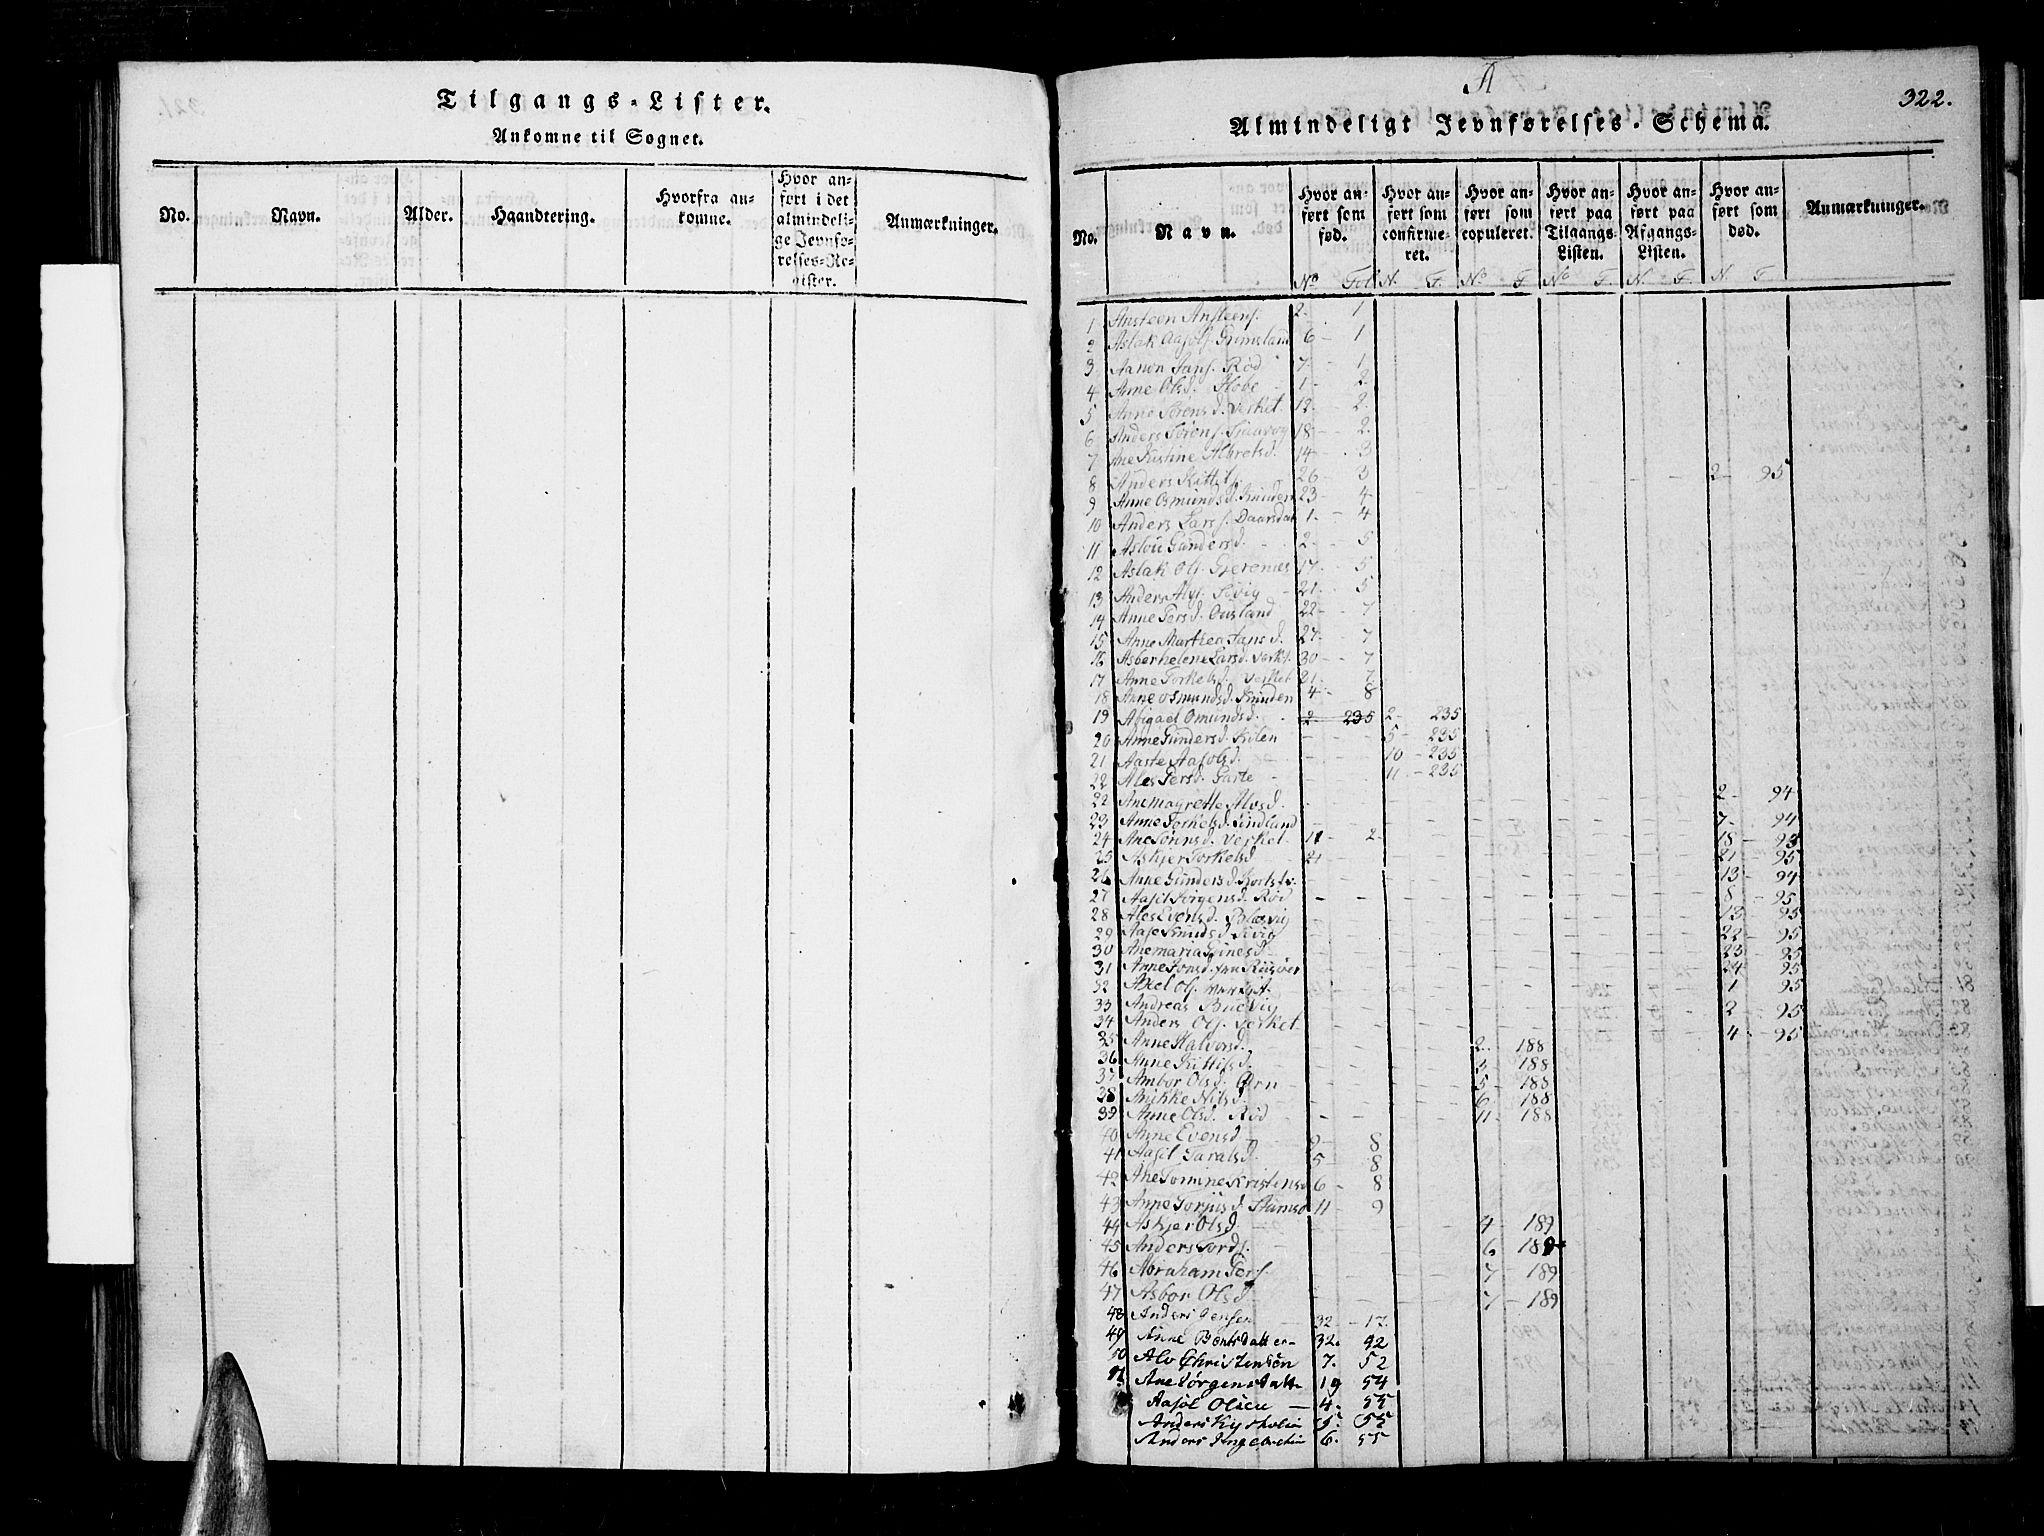 Tilgangs-Lister.
Ankomne til Sognet.
No.
Navn.
Alder.
Haandtering.
Hvorfra an-
komne.
Hvor an-
ført i det
almindeli-
ge Jevnfø-
relses-Re-
gister.
Anmærkninger.
A
322.
Almindeligt Jevnførelses-Schema.
No.
Navn.
Hvor an-
ført som
fød.
Hvor an-
ført som
confirme-
ret.
Hvor an-
ført som
copuleret.
Hvor an-
ført paa
Tilgangs-
Listen.
Hvor an-
ført paa
Afgangs-
Listen.
Hvor an-
ført som
død.
Anmærkninger.
No Fol N. F. No F No F. N. F. N. F.
1 Ansteen Ansteens. 2. 1
2 Aslak Aasols. Grimsland 6 - 1
3 Aanon Jans. Rød 7 - 1
4 Anne Olsd. 1 - 2
5 Anne Sørensd. Verket 12 - 2.
6 Anders Sørens. 18 - 2.
7 Ane Kistine Albretsd. 14 - 3
8 Anders Kittils. 26 - 3 2 - 95
9 Anne Osmundsd. 23 - 4
10 Anders Larss. 1. - 4
11 Aslou Gundersd. 2. - 5
12 Aslak Ols. 17. - 5
13 Anders Alfs. 21. - 5
14 Anne Persd. Ousland 22 - 7
15 Anne Marthea Jansd. 27. - 7
16 Asberhelene Larsd. Verkt. 30 - 7
17 Anne Torkelsd. Verket 21. - 7
18 Anne Osmundsd. 4 - 8
19 Abigael Omundsd. 2 235 2 - 235
20 Anne Gundersd. Kilen 5 - 235
21 Aaste Aasolsd. 10 - 235
22 Ales Persd. Garte 11 - 235
22 Anemagrette Alvsd. 2 - 94
23 Anne Torkelsd. Lindland 7. - 94
24 Ane Sørensd. Verket 11 2 18 - 93
25 Askjer Torkelsd 21 21 - 95
26 Anne Gundersd. 13 - 94
27 Aasil Jørgensd. Rød 8 - 95
28 Ales Evensd. 13 - 95
29 Aase Knudsd. 22 - 95
30 Anemaria 23 - 95
31 Anne Jonsd. fra Riisøer 24 - 95
32 Axel Ols. Verket 1 95
33 Andreas Buevig 2 - 95
34 Anders Ols. Verket 4 - 95
35 Anne Halvorsd. 2. - 188
36 Anne Kittilsd. 188
37 Ambor Olsd. 5 - 188
38 Anikke Nilsd. 6 - 188
39 Anne Olsd. Rød 11 - 188
40 Anne Evensd 2 - 8
41 Aasil Taralsd. 5 - 8
42 Ane Tomine Kristensd 6 - 8
43 Anne Torjusd. 11 - 9
44 Askjer Olsd 4 - 189
45 Anders Tords. 6 189
46 Abraham Pers. 7 - 189
47 Asbor Olsd 7 - 189
48 Anders Jensen 32 - 17.
49 Anne Berntsdatter 32. 42
50 Alv Christensøn 7. 52
51 Ane Jørgensdatte 19 54
Aasol Olsen 4. 55
Anders 5. 55
Anders 6. 55